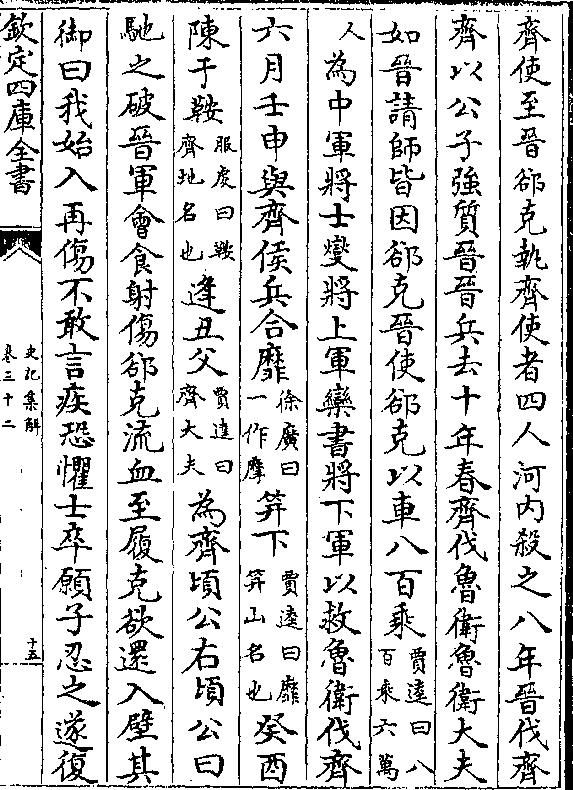 齊使至晉郤克執齊使者四人河内殺之八年晉伐齊
齊以公子強質晉晉兵去十年春齊伐魯衛魯衛大夫
如晉請師皆因郤克晉使郤克以車八百乘賈逵曰八百乘六萬
人為中軍將士燮將上軍欒書將下軍以救魯衛伐齊
六月壬申與齊侯兵合靡徐廣曰一作摩笄下賈逵曰靡笄山名也癸酉
陳于鞍服虔曰鞍齊地名也逢丑父賈逵曰齊大夫為齊頃公右頃公曰
馳之破晉軍會食射傷郤克流血至履克欲還入壁其
御曰我始入再傷不敢言疾恐懼士卒願子忍之遂復
欽定四庫全書
史記集解
卷三十二
十五